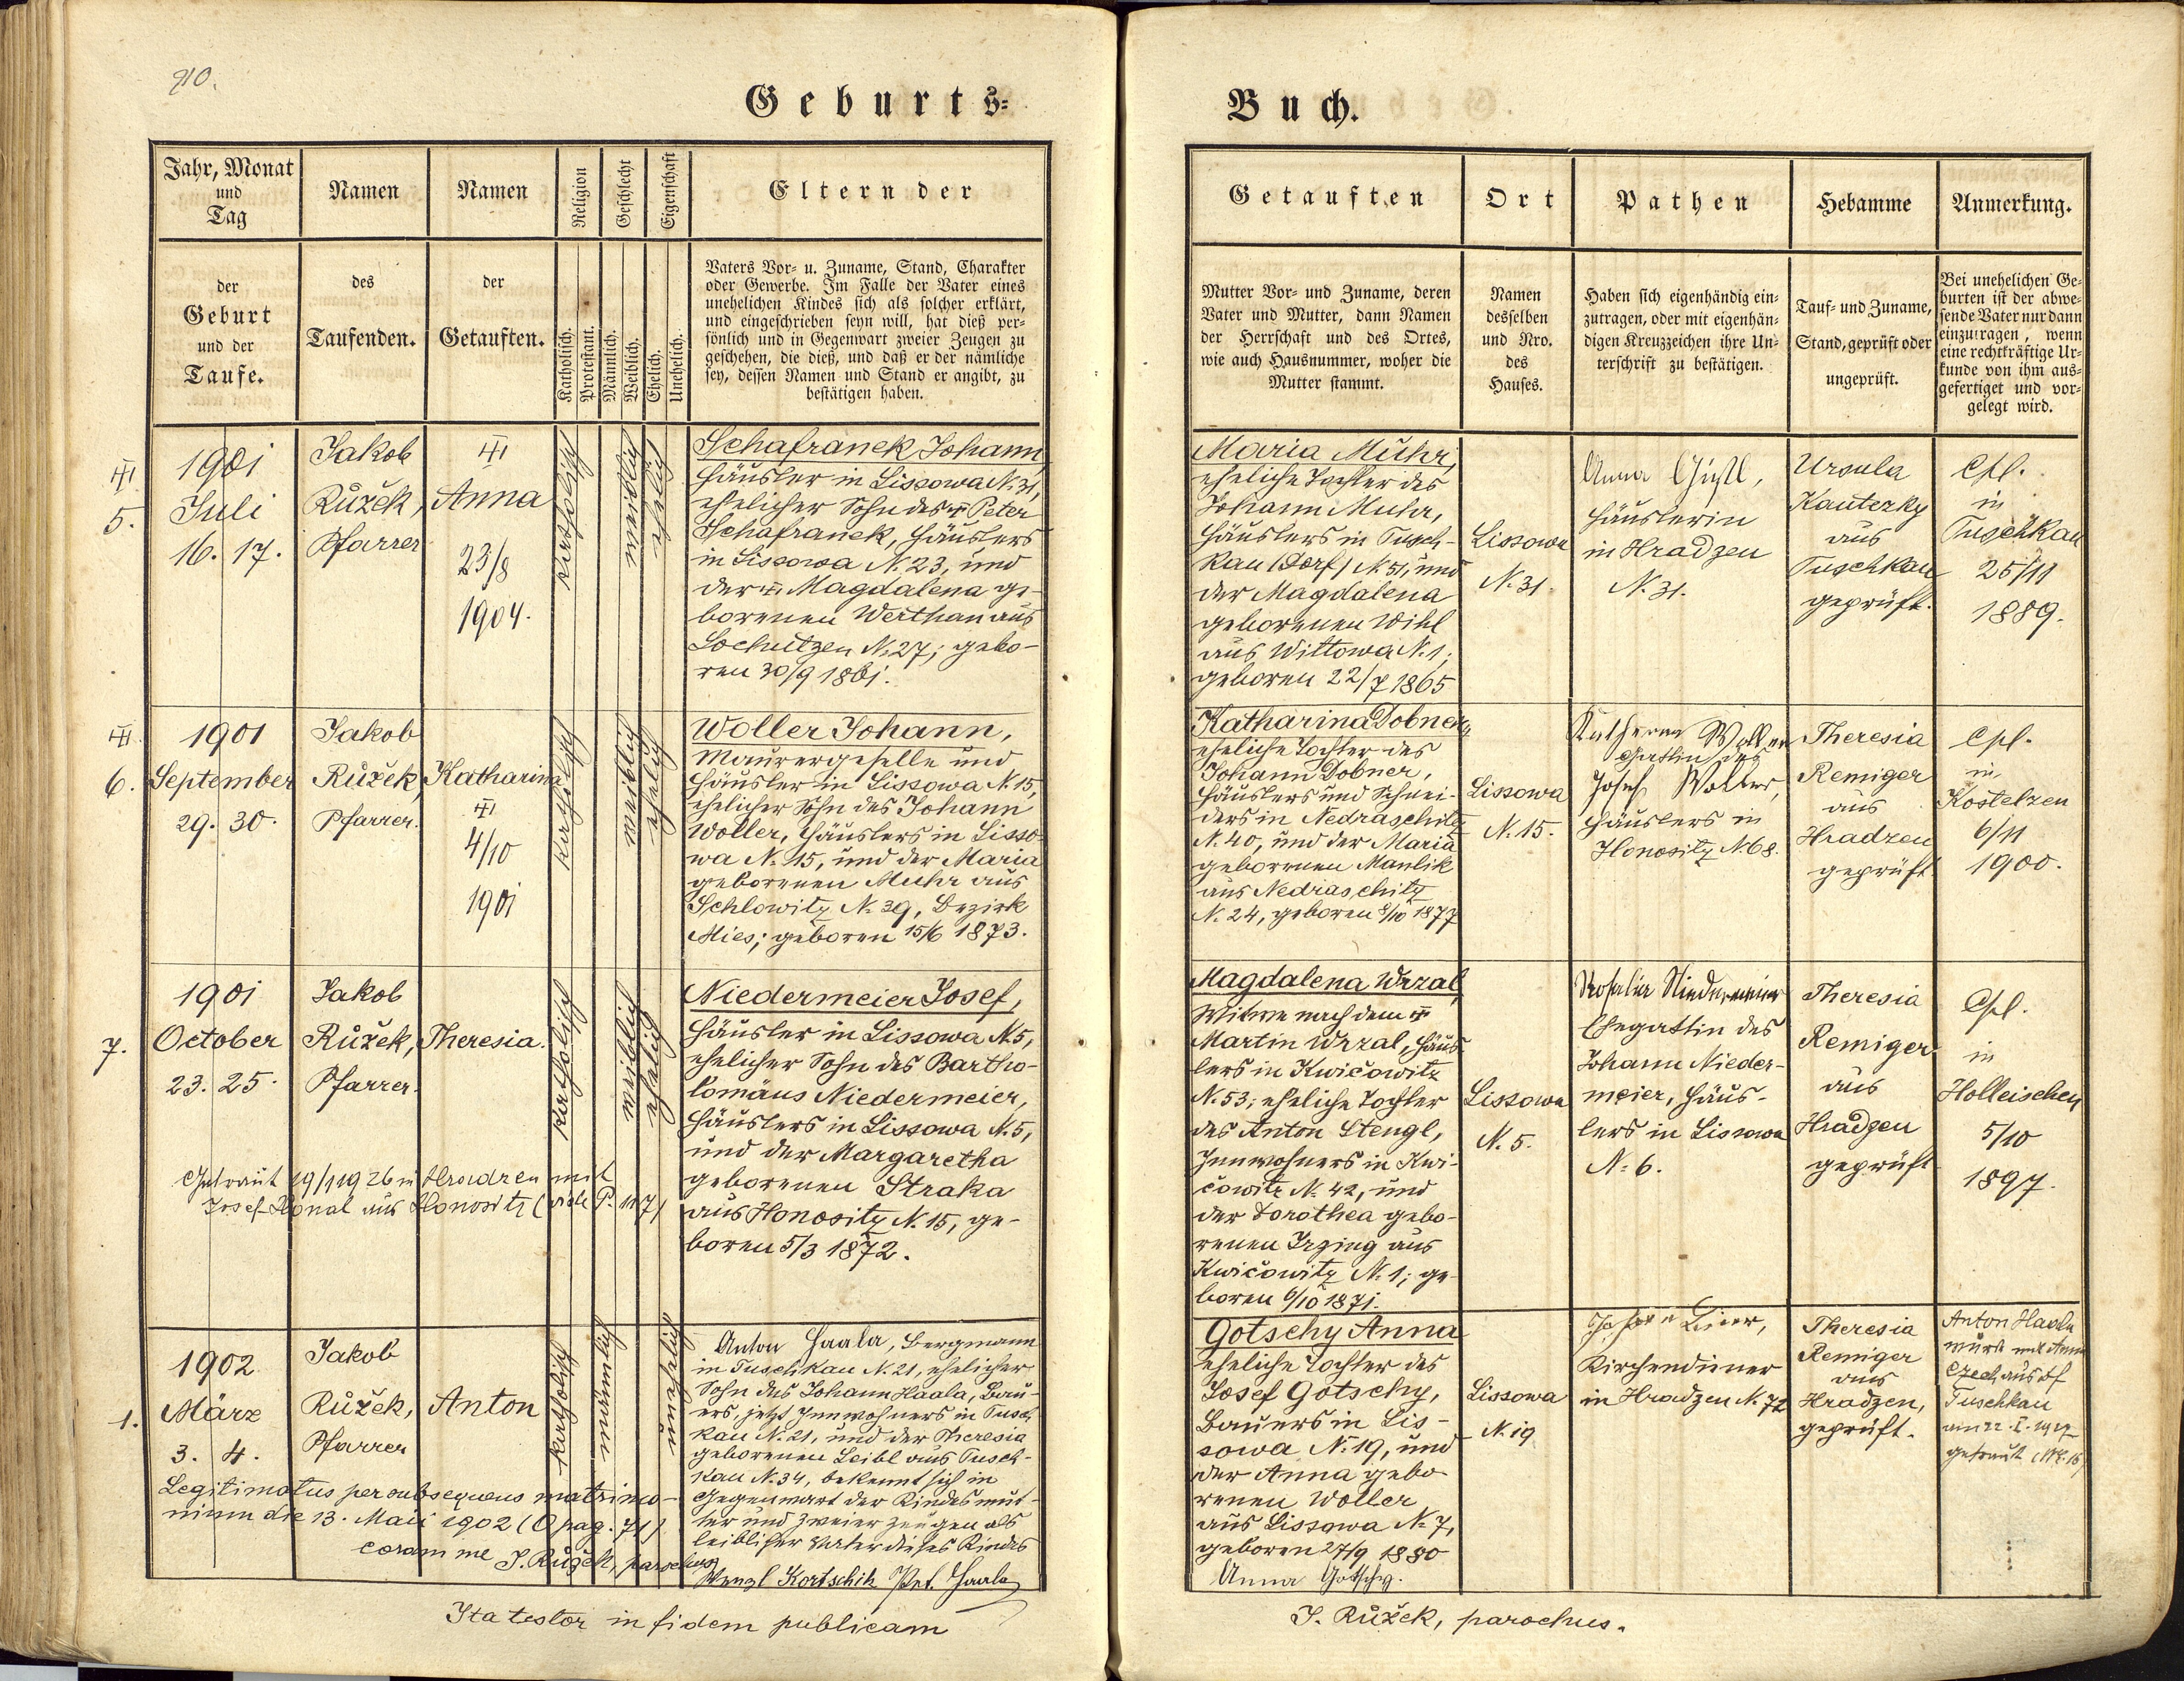 910.
Geburts-
Jahr, Monat
und
Tag
Namen
Namen
Religion
Geschlecht
Eigenschaft
Eltern der
der
Geburt
und der
Taufe.
des
Taufenden.
der
Getauften.
Katholisch.
Protestant.
Männlich.
Weiblich.
Ehelich.
Unehelich.
Vaters Vor- u. Zuname, Stand, Charakter
oder Gewerbe. Im Falle der Vater eines
unehelichen Kindes sich als solcher erklärt,
und eingeschrieben seyn will, hat dieß per-
sönlich und in Gegenwart zweier Zeugen zu
geschehen, die dieß, und daß er der nämliche
sey, dessen Namen und Stand er angibt, zu
bestätigen haben.
5.
1901
Juli
16. 17.
Jakob
Růžek,
Pfarrer
Anna
23/8
1904.
katholisch
weiblich
ehelich
Schafranek Johann,
Häusler in Lissowa N. 31,
ehelicher Sohn des Peter
Schafranek, Häuslers
in Lissowa N. 23, und
der Magdalena ge-
borenen Werthan aus
Lochutzen N. 27; gebo-
ren 30/9 1861.
6.
1901
September
29. 30.
Jakob
Růžek,
Pfarrer.
Katharina
4/10
1901
katholisch
weiblich
ehelich
Woller Johann,
Maurergeselle und
Häusler in Lissowa N. 15,
ehelicher Sohn des Johann
Woller, Häuslers in Lisso-
wa N. 15, und der Maria
geborenen Muhr aus
Schlowitz N. 39, Bezirk
Mies; geboren 15/6 1873.
7.
1901
October
23. 25.
Jakob
Růžek,
Pfarrer.
Theresia.
katholisch
weiblich
ehelich
Niedermeier Josef,
Häusler in Lissowa N. 5,
ehelicher Sohn des Bartho-
lomäus Niedermeier,
Häuslers in Lissowa N. 5,
und der Margaretha
geborenen Straka
aus Honositz N. 15, ge-
boren 5/3 1872.
Getraut 19/1 1926 in Hradzen mit
Josef aus Honositz
1.
1902
März
3. 4.
Jakob
Růžek,
Pfarrer
Anton
katholisch
männlich
unehelich
Anton Haala, Bergmann
in Tuschkau N. 21, ehelicher
Sohn des Johann Haala, Bau-
ers, jetzt Innwohners in Tusch-
kau N. 21, und der Theresia
geborenen Leibl aus Tusch-
kau N. 34, bekennt sich in
Gegenwart der Kindesmut-
ter und zweier Zeugen als
leiblicher Vater dieses Kindes
Wenzl Kortschik Ant. Haala
Legitimatus per subsequens matrimo-
nium die 13. Maii 1902 (O pag. 71)
coram me J. Růžek, parochus
Ita testor in fidem publicam
Buch.
Getauften
Ort
Pathen
Hebamme
Anmerkung.
Mutter Vor- und Zuname, deren
Vater und Mutter, dann Namen
der Herrschaft und des Ortes,
wie auch Hausnummer, woher die
Mutter stammt.
Namen
desselben
und Nro.
des
Hauses.
Haben sich eigenhändig ein-
zutragen, oder mit eigenhän-
digen Kreuzzeichen ihre Un-
terschrift zu bestätigen.
Tauf- und Zuname,
Stand, geprüft oder
ungeprüft.
Bei unehelichen Ge-
burten ist der abwe-
sende Vater nur dann
einzutragen, wenn
eine rechtkräftige Ur-
kunde von ihm aus-
gefertiget und vor-
gelegt wird.
Maria Muhr,
eheliche Tochter des
Johann Muhr,
Häuslers in Tusch-
kau (Dorf) N. 51, und
der Magdalena
geborenen Wihl
aus Wittowa N. 1;
geboren 22/7 1865
Lissowa
N. 31.
Anna
Häuslerin
in Hradzen
N. 31.
Ursula
Kautezky
aus
Tuschkau
geprüft.
Cpl.
in
Tuschkau
25/11
1889.
Katharina Dobner,
eheliche Tochter des
Johann Dobner,
Häuslers und Schnei-
ders in Nedraschitz
N. 40, und der Maria
geborenen Manlik
aus Nedraschitz
N. 24, geboren 8/10 1877
Lissowa
N. 15.
Katharina Woller
Gattin des
Josef Woller,
Häuslers in
Honositz N 68.
Theresia
Remiger
aus
Hradzen
geprüft.
Cpl.
in
Kostelzen
6/11
1900.
Magdalena Wrzal,
Witwe nach dem
Martin Wrzal, Häus-
lers in Kwičowitz
N. 53; eheliche Tochter
des Anton Stengl,
Innwohners in Kwi-
čowitz N. 42, und
der Dorothea gebo-
renen Irzing aus
Kwičowitz N. 1; ge-
boren 6/10 1871.
Lissowa
N. 5.
Rosalia Niedermeier
Ehegattin des
Johann Nieder-
meier, Häus-
lers in Lissowa
N. 6.
Theresia
Remiger
aus
Hradzen
geprüft
Cpl.
in
Holleischen
5/10
1897.
Gotschy Anna
eheliche Tochter des
Josef Gotschy,
Bauers in Lis-
sowa N. 19, und
der Anna gebo-
renen Woller
aus Lissowa N. 7,
geboren 27/9 1880
Anna Gotschy.
Lissowa
N. 19
Kirchendiener
in Hradzen N. 72
Theresia
Remiger
aus
Hradzen,
geprüft.
Anton Haala
wurde mit Anna
Czech aus Df
Tuschkau
am 22. I. 1927
getraut
J. Růžek, parochus.